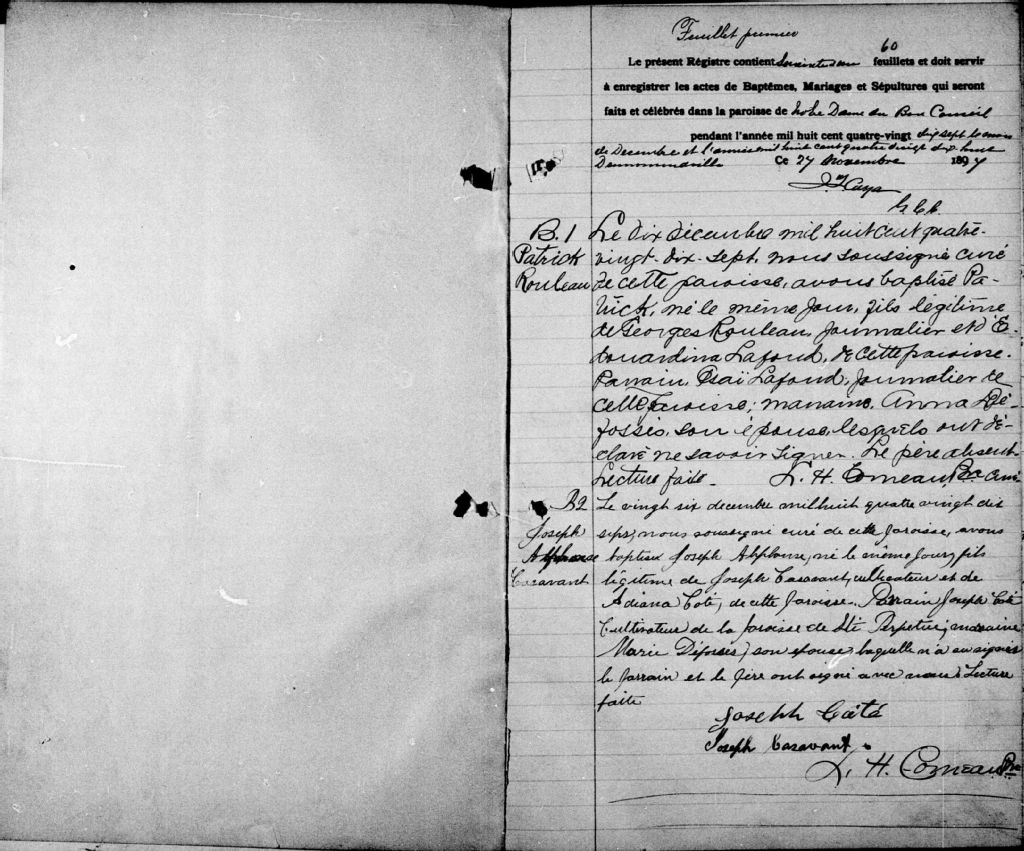 Feuillet premier
60
Le présent Régistre contient soixante feuillets et doit servir
à enregistrer les actes de Baptêmes, Mariages et Sépultures qui seront
faits et célébrés dans la paroisse de Notre Dame du Bon Conseil
pendant l'année mil huit cent quatre-vingt dix sept le mois
de Decembre et l'année mil huit cent quatre vingt dix huit
Drummondville Ce 27 Novembre 1897
Caya
G. C. C.
B. 1 Le dix décembre mil huit cent quatre-
Patrick vingt-dix-sept, nous soussigné curé
Rouleau de cette paroisse, avons baptisé Pa-
trick, né le même jour, fils légitime
de Georges Rouleau, journalier et d'E-
douardina Lafond, de cette paroisse.
Parrain, Isaï Lafond, journalier de
cette paroisse; marraine, Anna Dé-
fossés, son épouse, lesquels ont dé-
claré ne savoir signer. Le père absent.
Lecture faite. L. H. Comeau, Ptre curé
B2 Le vingt six decembre mil huit quatre vingt dix
Joseph sept, nous soussigné curé de cette paroisse, avons
Alphonse baptisé Joseph Alphonse, né le même jour, fils
Casavant légitime de Joseph Casavant, cultivateur et de
Adiana Coté, de cette paroisse. Parrain Joseph Coté
Cultivateur de la paroisse de Ste Perpetue, marraine
Marie Défossés, son epouse, laquelle n'a su signer
le parrain et le père ont signé avec nous. Lecture
faite
Joseph Coté
Joseph Casavant
L. H. Comeau Ptre